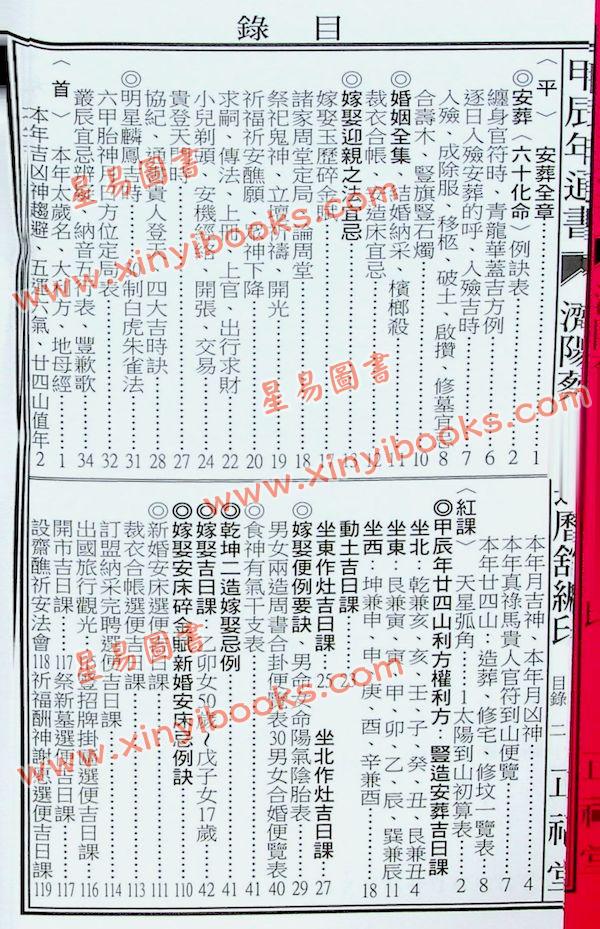 目錄
甲辰年通書
〈平〉安葬全章 1
◎安葬〈六十化命〉例訣表 2
纏身官符時、青龍華蓋吉方例 6
逐日入殮安葬的呼、入殮吉時 7
入殮、成除服、移柩、破土、啟攢、修墓宜忌 8
合壽木、豎旗豎石燭 10
婚姻全集 結婚納采、檳榔殺 11
裁衣合帳 造床宜忌 12
◎嫁娶迎親之法宜忌 13
嫁娶玉歷碎金 15
諸家周堂定局 論周堂 18
祭祀鬼神、立 禱、開光 19
祈福祈安醮願 神下降 20
求嗣、傳法、上 上官、出行求財 22
小兒剃頭 安機經絡、開張、交易 24
貴登天門時 27
協紀、通 貴人登天 四大吉時訣 28
◎明星麟鳳吉時 制白虎朱雀法 31
六甲胎神 日方位定局表 32
叢辰宜忌辨 納音五行表 豐歉歌 34
〈首〉本年太歲名、大利方、地母經 1
本年吉凶神趨避、五運六氣、廿四山值年 2
本年月吉神、本年月凶神 4
本年真祿馬貴人官符到山便覽 7
本年廿四山：造葬、修宅、修墳一覽表 8
〈紅課〉天星弧角 1 太陽到山初算表 2
◎甲辰年廿四山利方權利方：豎造安葬吉日課
坐北：乾兼亥、亥、壬、子、癸、丑、艮兼丑 4
坐東：艮兼寅、寅、甲、卯、乙、辰、巽兼辰 11
坐西：坤兼申、申、庚、酉、辛兼酉 18
動土吉日課 23
坐東作灶吉日課 25 坐北作灶吉日課 27
嫁娶便例要訣、男命女命陽氣陰胎表 29
男女兩造周書合卦便覽表 30 男女合婚便覽表 40
◎食神有氣干支表 41
◎乾坤二造嫁娶忌例 41
◎嫁娶吉日課 乙卯女50歲～戊子女17歲 42
◎嫁娶安床碎金賦新婚安床忌例訣 110
◎新婚安床選便吉日課 111
裁衣合帳選便吉日課 113
訂盟納采完聘選便吉日課 114
出國旅行觀光 115 豎招牌掛 選便吉日課 116
開市吉日課 117 祭新墓選便吉日課 117
設齋醮祈安法會 118 祈福酬神謝 選便吉日課 119
目錄 二
星易圖書
www.xinyibooks.com
星易圖書
www.xinyibooks.com
星易圖書
www.xinyibooks.com
星易圖書
www.xinyibooks.com